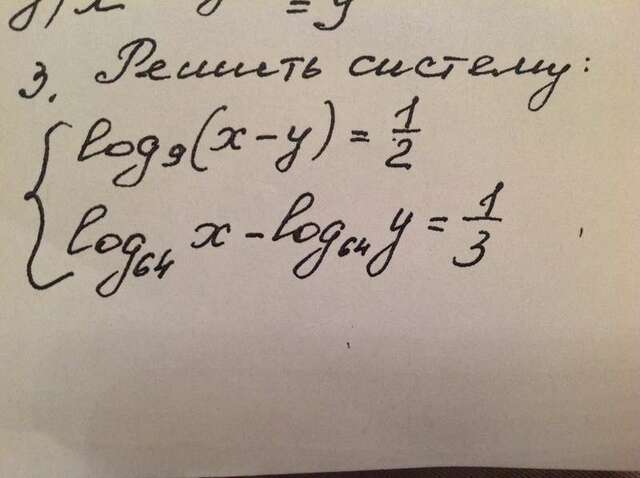 = y
3. Решить систему:
log₉(x-y) = 1/2
log₆₄ x - log₆₄ y = 1/3